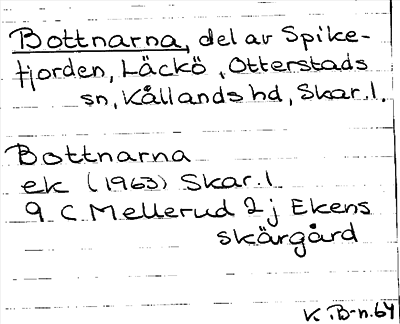 Bottnarna, del av Spike-
fjorden, Läckö, Otterstads
sn, Kållands hd, Skar. l.
Bottnarna
ek (1963) Skar. l.
9 C Mellerud 2 j Ekens
skärgård
K. B-n. 64